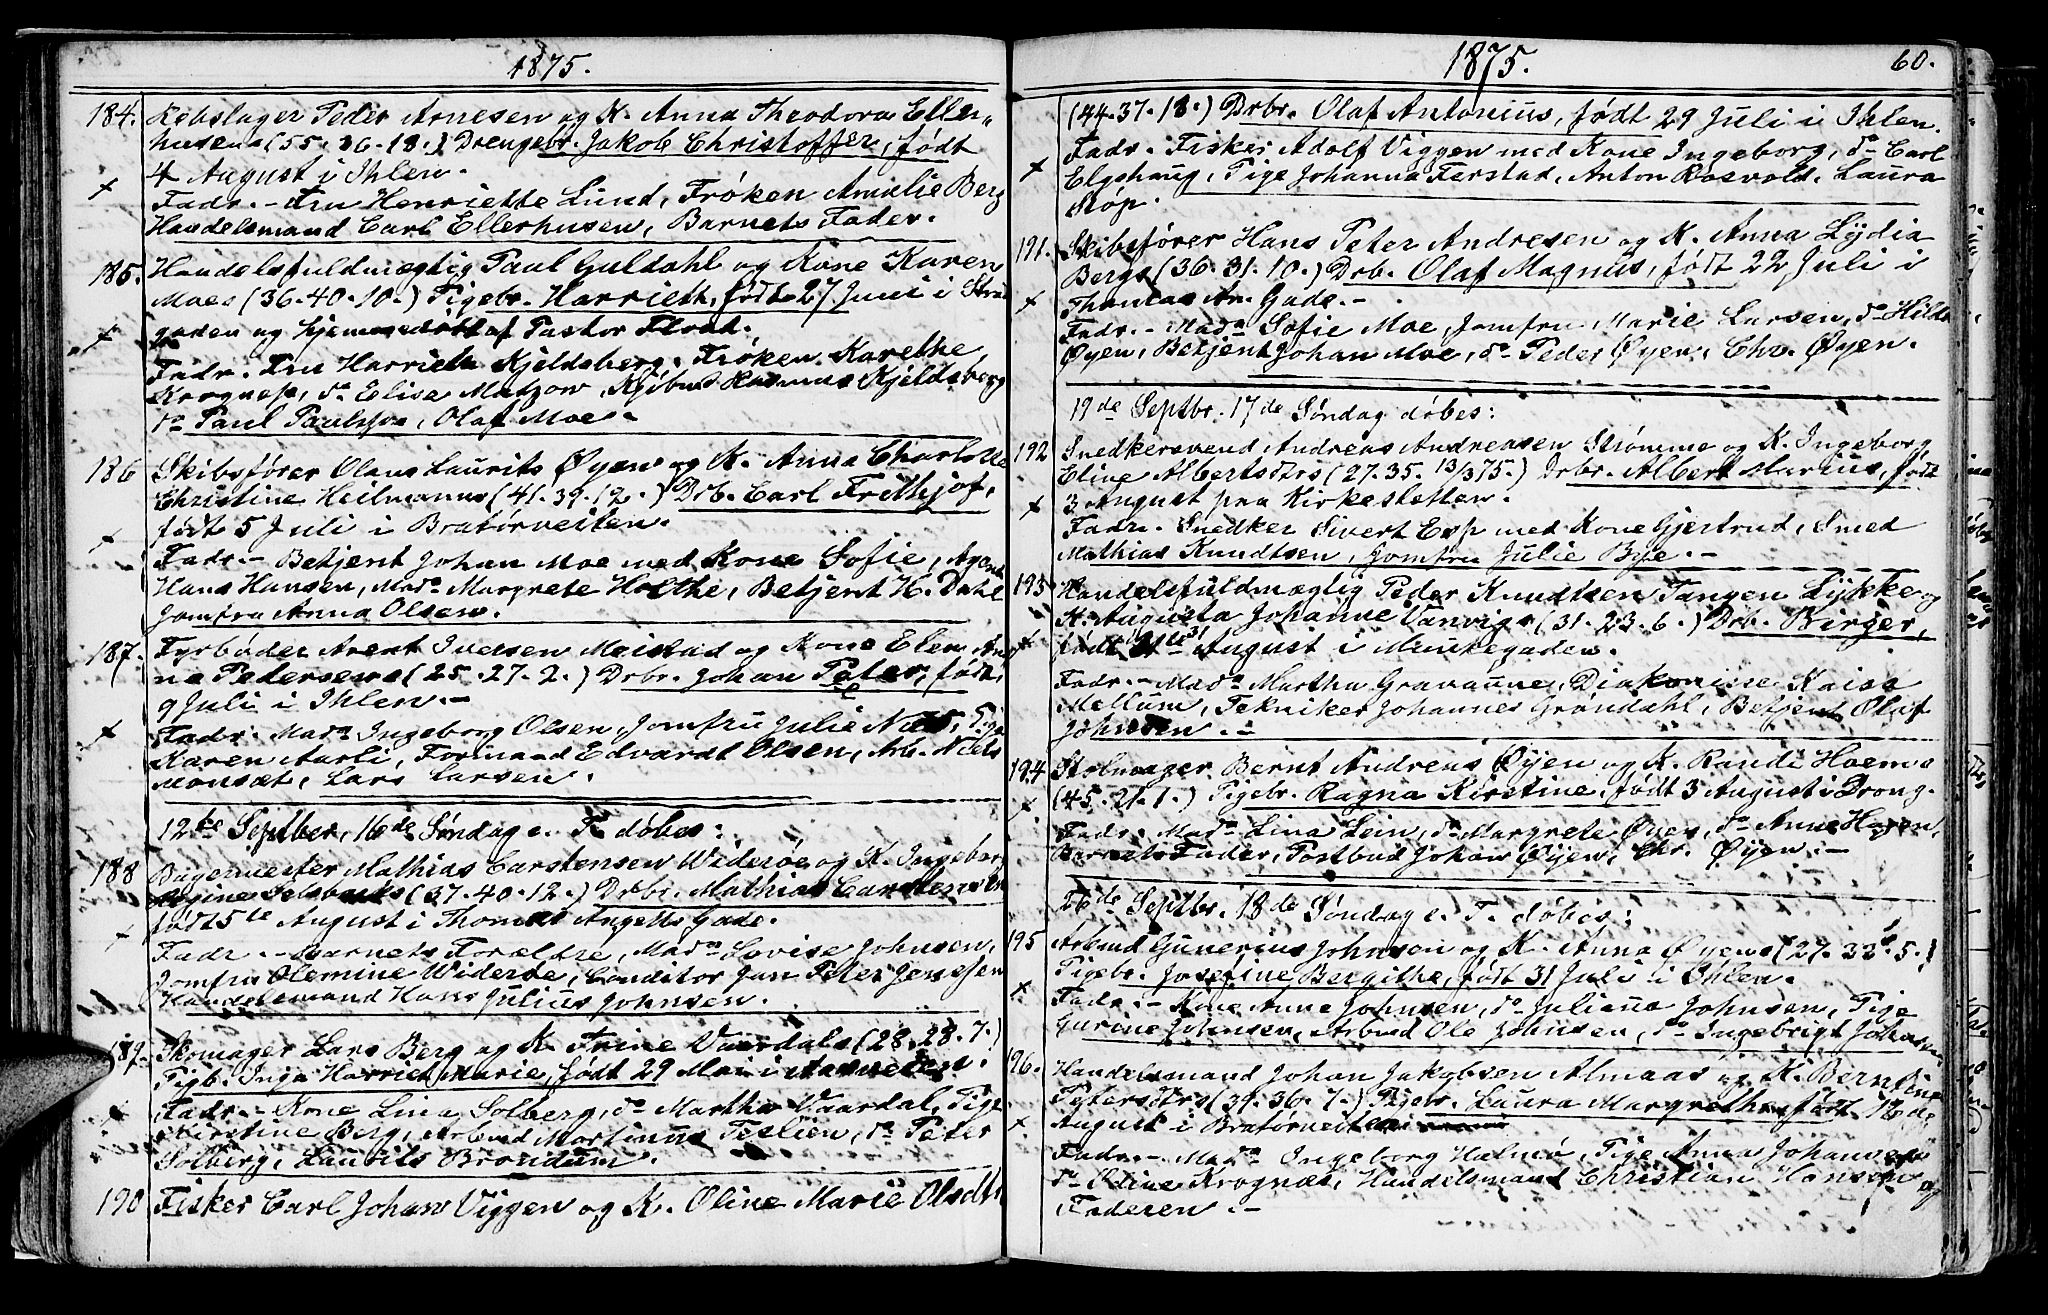 1875.
184. Rebslager Peder Arnesen og K. Anna Theodora Eller„
husens (55. 36. 18.) Drengebr. Jakob Christoffer, født
4 August i Ihlen.
Fadr. – Fru Henriette Lund, Frøken Amalie Berg
Handelsmand Carl Ellerhusen, Barnets Fader.
185. Handelsfuldmægtig Paul Guldahl og Kone Karen
Moes (36. 40. 10.) Pigebr. Harrieth, født 27 Juni i Strand
gaden og hjemmedøbt af Pastor Flood.
Fadr. Fru Harrieth Kjeldsberg, Frøken Karethe
Krogness, do Elise Matzow, Kjøbmd Rasmus Kjeldsberg
do Paul Paulssen, Olaf Moe.
186 Skibsfører Olaus Laurits Øyen og K. Anna Charlotte
Christine Heilmanns (41. 39. 12.) Drb. Carl Frithjof,
født 5 Juli i Bratørveiten.
Fadr. – Betjent Johan Moe med Kone Sofie, Agent
Hans Hansen, Mada Margrete Holthe, Betjent H. Dahl
Jomfru Anna Olsen.
187. Fyrbøder Arent Iversen Meistad og Kone Elen An
na Pedersens (25. 27. 2.) Drbr. Johan Peter, født
9 Juli i Ihlen. –
Fadr. Mada Ingeborg Olsen, Jomfru Julie Næss, Pige
Karen Aarli, Formand Edvardt Olsen, Arb. Niels
Monsæt, Lars Larsen.
12te Septber, 16de Søndag e. T. døbes:
188 Bagermester Mathias Carstensen Widerøe og K. Ingeborg
Regine Selsbacks (37. 40. 12.) Drbr. Mathias Carstens
født 5te August i Thomas Angells Gade.
Fadr. – Barnets Forældre, Mada Lovise Johnsen,
Jomfru Olemine Widerøe, Conditor Jan Peter Jenssen
Handelsmand Hans Julius Johnsen.
189. Skomager Lars Berg og K. Trine Vaardals (28. 28. 7.)
Pigb. Inga Harriet Marie, født 29 Mai i
Fadr. – Kone Lina Solberg, do Martha Vaardal, Pige
Kirstine Berg, Arbmd Martinus Teslien, do Peter
Solberg, Laurits Brondum.
190 Fisker Carl Johan Viggen og K. Oline Marie Olsdtr
1875.
60.
(44. 37. 18.) Drbr. Olaf Antonius, født 29 Juli i Ihlen.
Fadr. Fisker Adolf Viggen med Kone Ingeborg, do Carl
Elgshaug, Pige Johanna Ferstad, Anton Rosvold, Laura
Støp.
191. Skibsfører Hans Peter Andresen og K. Anna Lydia
Bergs (36. 31. 10.) Drb. Olaf Magnus, født 22 Juli i
Thomas An. Gade. –
Fadr. – Mada Sofie Moe, Jomfru Marie Larsen, do Hilda
Øyen, Betjent Johan Moe, do Peder Øyen, Chr. Øyen.
19de Septbr. 17de Søndag døbes:
192 Snedkersvend Andreas Andreasen Strømme og K. Ingeborg
Eline Albertsdtrs (27. 35. 13/3 75.) Drbr. Albert Marius, født
3 August paa Kirkesletten.
Fadr. Snedker Sivert Esp med Kone Gjertrud, Smed
Mathias Knudtsen, Jomfru Julie Bye. –
193 Handelsfuldmægtig Peder Knudtsen Tangen Lykke og
K. Augusta Johanne Vanvigs (31. 23. 6.) Drb. Birger,
født 31 August i Munkegaden.
Fadr. – Mada Martha Gravaune, Diakonisse Kaisa
Mellum, Tekniker Johannes Grøndahl, Betjent Olaf
Johnsen. –
194 Stolmager Bernt Andreas Øyen og K. Randi Hoems
(45. 21. 1.) Pigebr. Ragna Kirstine, født 3 August i Drong.
Fadr. Mada Lina Lein, do Margrete Øyen, do Anne Hagen,
Barnets Fader, Postbud Johan Øyen, Chr. Øyen. –
26de Septbr. 18de Søndag e. T. døbes:
195 Arbmd Gunerius Johnsen og K. Anna Øyens (27. 33. 5.)
Pigebr. Josefine Bergithe, født 31 Juli i Ihlen.
Fadr. – Kone Anne Johnsen, do Juliana Johnsen, Pige
Gurine Johnsen, Arbmd Ole Johnsen, do Ingebrigt Johnsen
196. Handelsmand Johan Jakobsen Almaas og K. Berntine
Petersdtrs (39. 36. 7.) Pigebr. Laura Margrethe, født 12de
August i Bratørveiten
Fadr. – Mada Ingeborg Halmø, Pige Anna Johansen
do Odine Krognæs, Handelsmand Christian Hansen og
Faderen. –